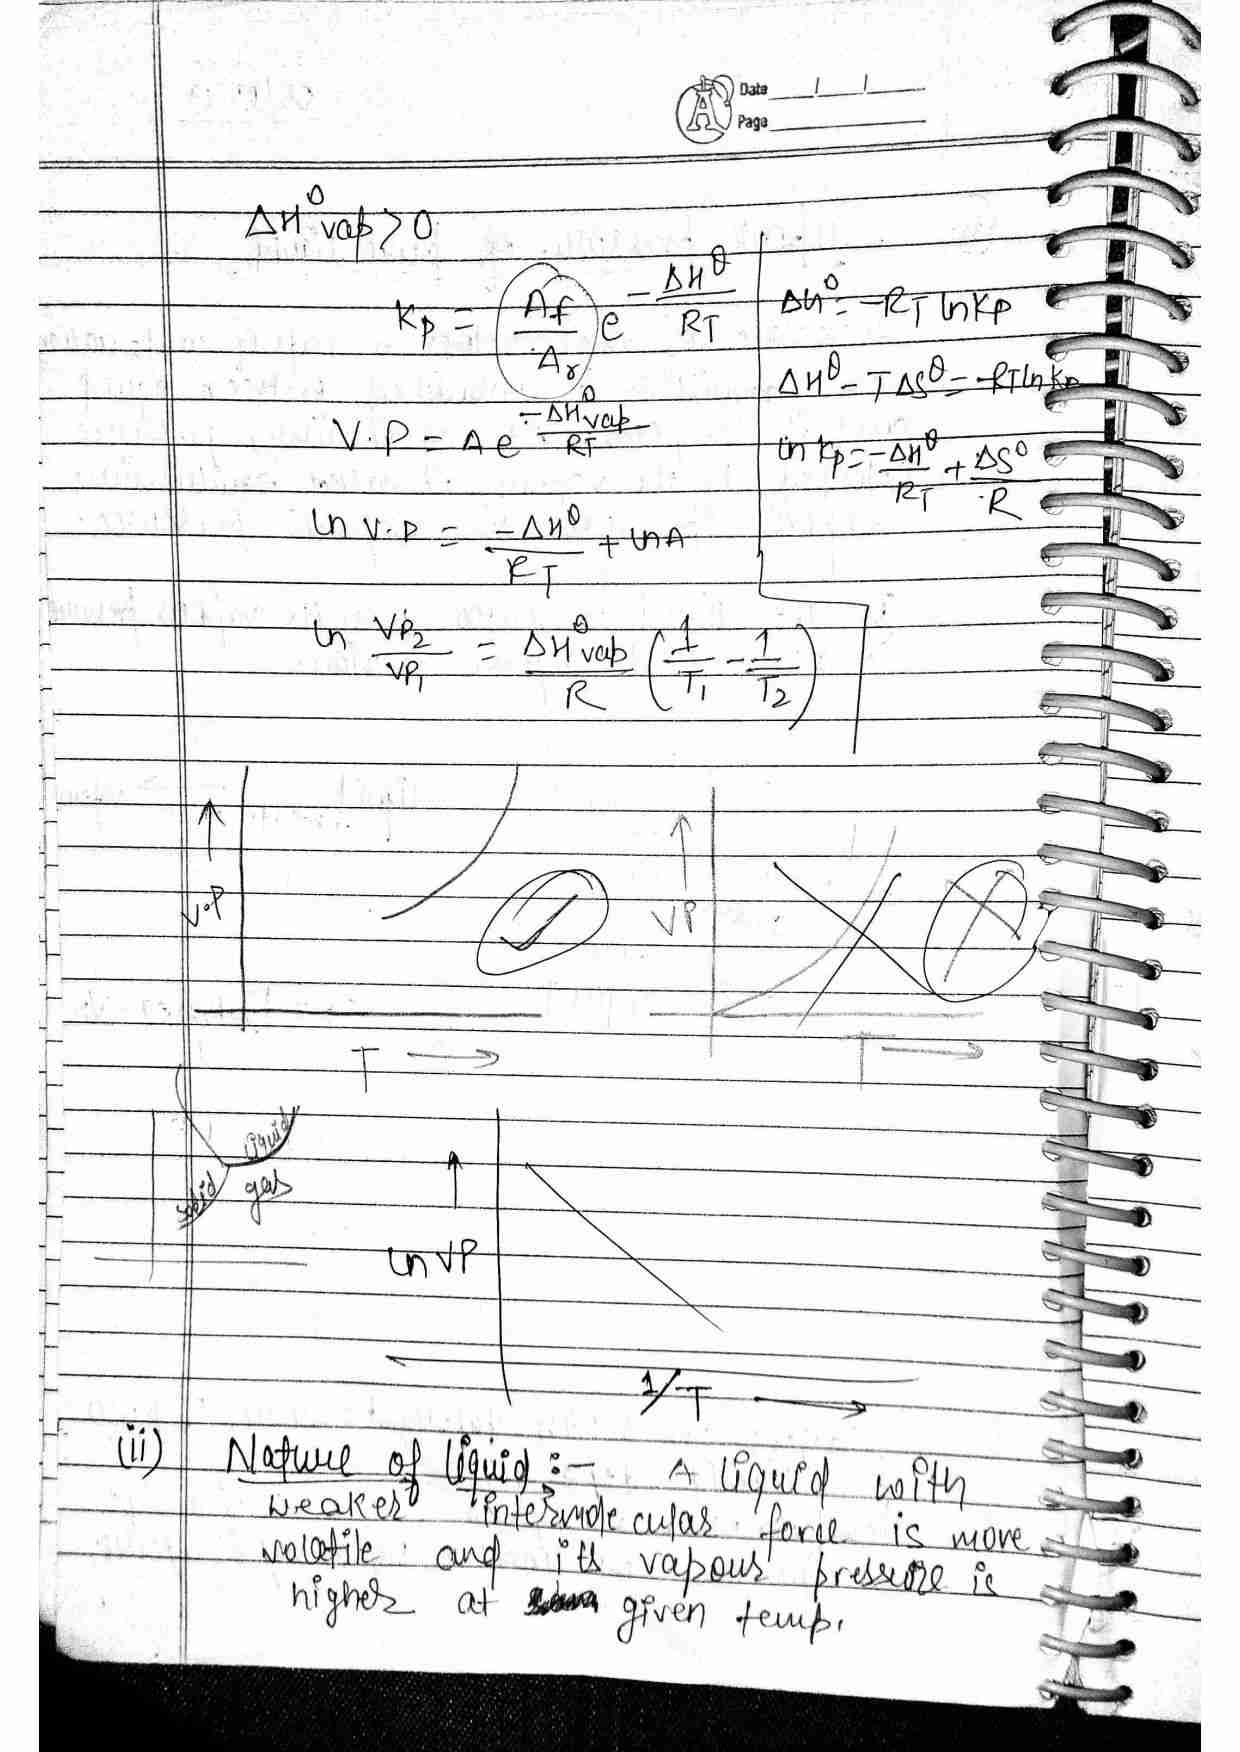 Date
Page
ΔH⁰vap > 0
Kp = (Af/Ar) e^(-ΔH⁰/RT)
V.P = A e^(-ΔH⁰vap/RT)
ln V.P = -ΔH⁰/RT + ln A
ΔH⁰ = -RT ln Kp
ΔH⁰ - TΔS⁰ = -RT ln Kp
ln Kp = -ΔH⁰/RT + ΔS⁰/R
ln VP₂/VP₁ = ΔH⁰vap/R (1/T₁ - 1/T₂)
V.P
T
VP
T
liquid
solid
gas
ln VP
1/T
(ii) Nature of liquid :- A liquid with
weaker intermolecular force is more
volatile and its vapour pressure is
higher at given temp.